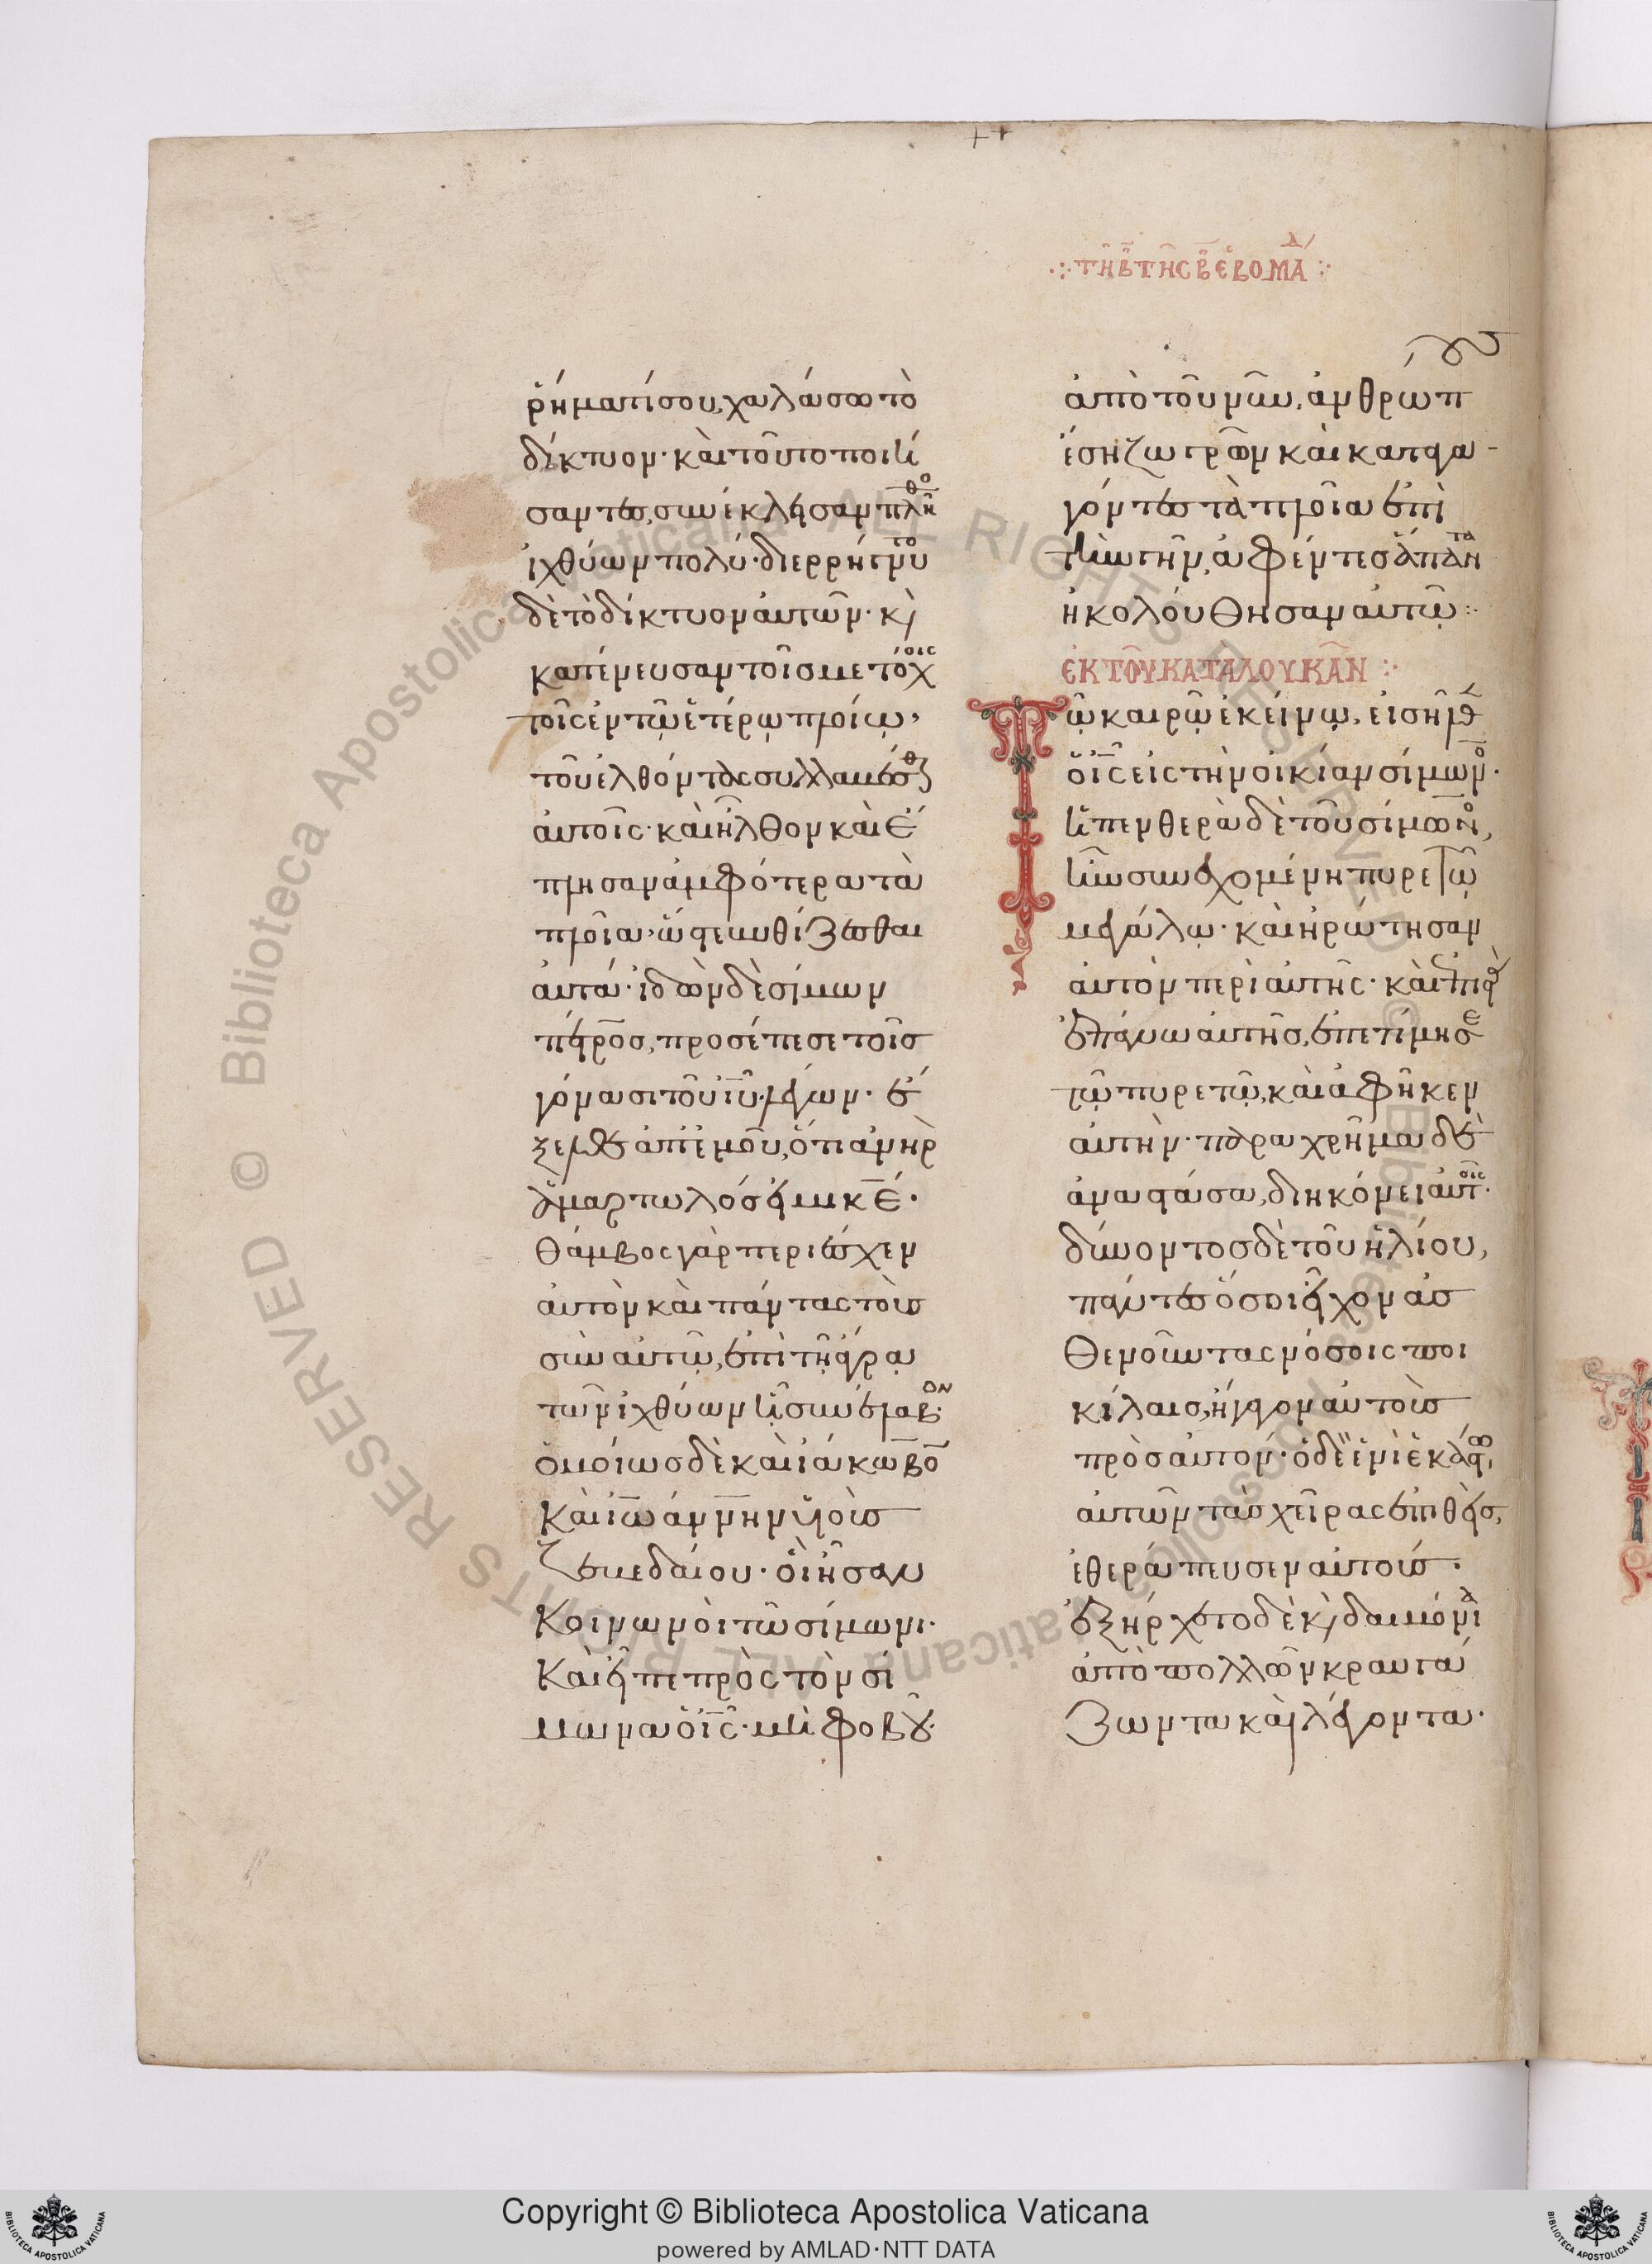 ·:· τῆ β̅ τῆς β̅ ἑβδομά(δ) ·:·
ῥήματί σου, χαλάσω τὸ
δίκτυον· καὶ τοῦτο ποιή
σαντες, συνέκλεισαν πλῆθο
ἰχθύων πολύ· διερρήγνυτο
δὲ τὸ δίκτυον αὐτῶν· κ(αὶ)
κατένευσαν τοῖς μετόχοις
τοῖς ἐν τῶ ἑτέρω πλοίω,
τοῦ ἐλθόντας συλλαμβέσθ(αι)
αὐτοῖς· καὶ ἦλθον καὶ ἔ
πλησαν ἀμφότερα τὰ
πλοῖα, ὥστε βυθίζεσθαι
αὐτά· ἰδὼν δὲ σίμων
πέτρος, προσέπεσε τοῖς
γόνασι τοῦ ἰῦ λέγων· ἔ
ξελθε ἀπ' ἐμοῦ, ὅτι ἀνὴρ
ἁμαρτωλός εἰμι κ̅ε̅·
θάμβος γὰρ περιέσχεν
αὐτὸν καὶ πάντας τοὺς
σὺν αὐτῶ, ἐπὶ τῆ ἄγρα
τῶν ἰχθύων ἧ συνέλαβον·
ὁμοίως δὲ καὶ ἰάκωβο
καὶ ἰωάννην υἱοὺς
ζεβεδαίου· οἳ ἦσαν
κοινωνοὶ τῶ σίμωνι·
καὶ εἶπε πρὸς τὸν σί
μωνα ὁ ι̅ς̅· μὴ φοβοῦ·
ἀπὸ τοῦ νῦν, ἀνθρώπ
ἔση ζωγρῶν καὶ καταγα-
γόντες τὰ πλοῖα ἐπὶ
τὴν γῆν, ἀφέντες ἅπαντα
ἠκολούθησαν αὐτῶ:·
ἐκ τοῦ κατὰ λουκᾶν ·:·
Τῶ καιρῶ ἐκείνω, εἰσῆλθ
ὁ ι̅ς̅ εἰς τὴν οἰκίαν σίμων(ο)·
ἡ πενθερὰ δὲ τοῦ σίμωνο,
ἦν συνεχομένη πυρετῶ
μεγάλω· καὶ ἠρώτησαν
αὐτὸν περὶ αὐτῆς· καὶ ἐπιστὰ
ἐπάνω αὐτῆς, ἐπετίμησε
τῶ πυρετῶ, καὶ ἀφῆκεν
αὐτήν· παραχρῆμα δὲ
ἀναστάσα, διηκόνει αὐτοῖς·
δύνοντος δὲ τοῦ ἡλίου,
πάντες ὅσοι εἶχον ἀσ
θενοῦντας νόσοις ποι
κίλαις, ἤγαγον αὐτοὺς
πρὸς αὐτόν· ὁ δὲ ἑνὶ ἑκάστω,
αὐτῶν τὰς χεῖρας ἐπιθείς,
ἐθεράπευσεν αὐτούς·
ἐξήρχετο δὲ κ(αὶ) δαιμόνι(α)
ἀπὸ πολλῶν κραυγά
ζοντα καὶ λέγοντα·
Copyright © Biblioteca Apostolica Vaticana
powered by AMLAD·NTT DATA